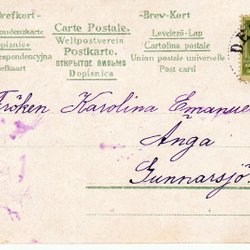 Brefkort – Carte Postale. – Brev-Kort
Weltpostverein Levelező-Lap
Dopisnice Postkarte. Cartolina postale
ОТКРЫТОЕ ПИСЬМО Union postale universelle
Dopisnica Post card
Fröken Karolina Emanuel
Ånga
Gunnarsjö